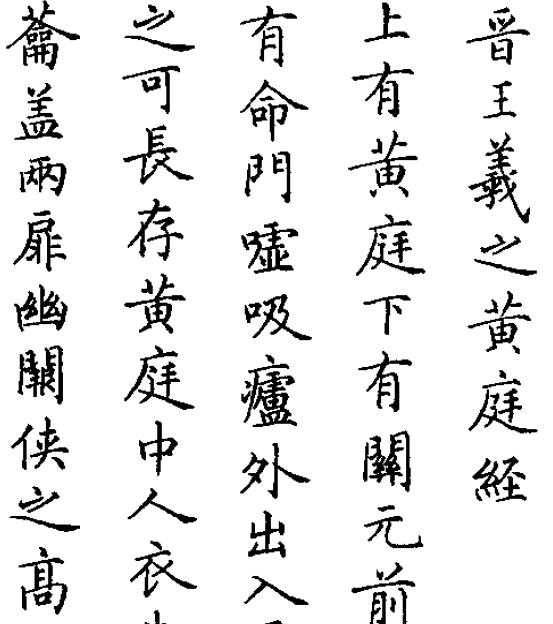 晋王羲之黄庭経
上有黄庭下有關元前
有命門嘘吸廬外出入
之可長存黄庭中人衣
蘥盖兩扉幽關侠之高